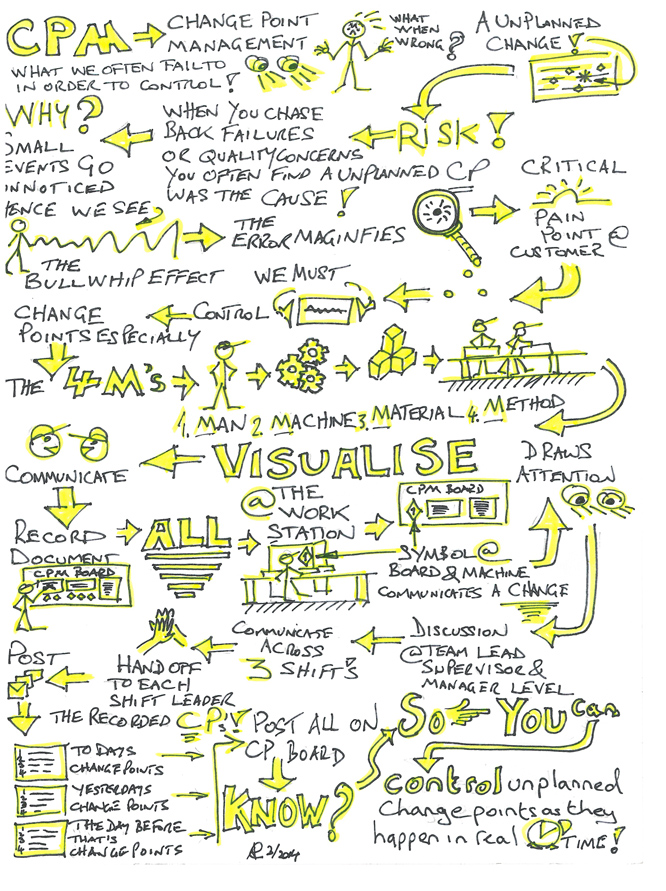 CPM
CHANGE POINT
MANAGEMENT
WHAT
WHEN
WRONG?
A UNPLANNED
CHANGE!
WHAT WE OFTEN FAIL TO
IN ORDER TO CONTROL!
WHY?
SMALL
EVENTS GO
UNNOTICED
HENCE WE SEE
WHEN YOU CHASE
BACK FAILURES
OR QUALITY CONCERNS
YOU OFTEN FIND A UNPLANNED CP
WAS THE CAUSE!
RISK!
CRITICAL
PAIN
POINT @
CUSTOMER
THE
ERROR MAGINFIES
THE
BULLWHIP EFFECT
WE MUST
CONTROL
CHANGE
POINTS ESPECIALLY
THE 4-M's
1. MAN 2. MACHINE 3. MATERIAL 4. METHOD
VISUALISE
DRAWS
ATTENTION
COMMUNICATE
RECORD
DOCUMENT
CPM BOARD
ALL
@ THE
WORK
STATION
CPM BOARD
SYMBOL @
BOARD & MACHINE
COMMUNICATES A CHANGE
DISCUSSION
@ TEAM LEAD
SUPERVISOR &
MANAGER LEVEL
COMMUNICATE
ACROSS
3 SHIFT'S
HAND OFF
TO EACH
SHIFT LEADER
POST
THE RECORDED CP's!
POST ALL ON
CP BOARD
TODAYS
CHANGE POINTS
YESTERDAYS
CHANGE POINTS
THE DAY BEFORE
THAT'S
CHANGE POINTS
KNOW?
So YOU Can
control unplanned
Change points as they
happen in real TIME!
2/2014